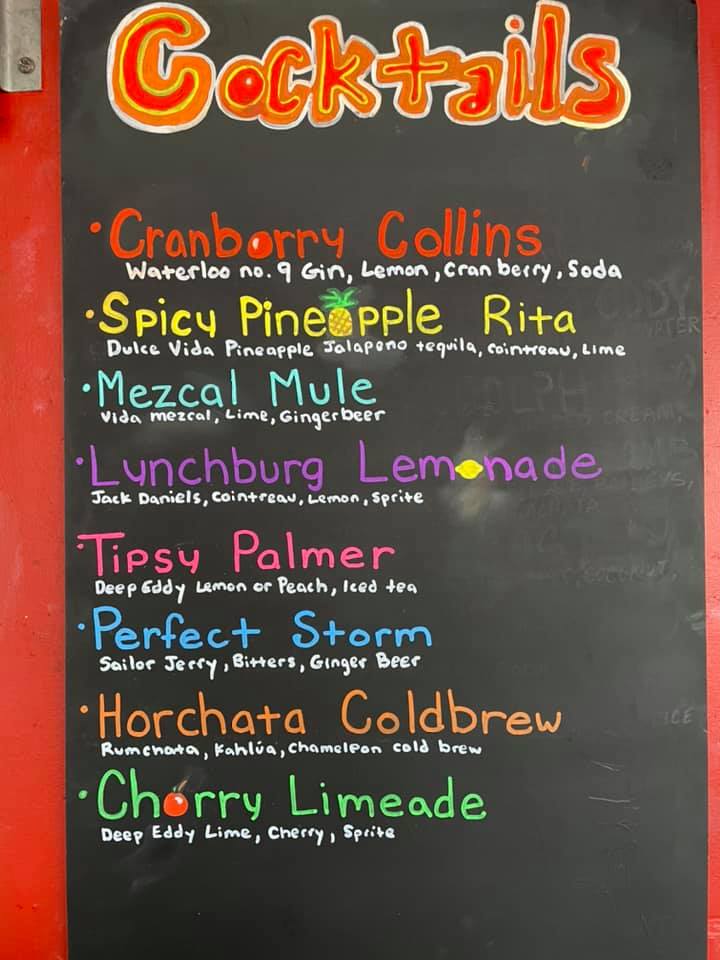 Cocktails
• Cranborry Collins
Waterloo no. 9 Gin, Lemon, Cranberry, Soda
• Spicy Pineapple Rita
Dulce Vida Pineapple Jalapeno tequila, Cointreau, Lime
• Mezcal Mule
Vida mezcal, Lime, Gingerbeer
• Lynchburg Lemonade
Jack Daniels, Cointreau, Lemon, Sprite
• Tipsy Palmer
Deep Eddy Lemon or Peach, Iced tea
• Perfect Storm
Sailor Jerry, Bitters, Ginger Beer
• Horchata Coldbrew
Rumchata, Kahlúa, Chameleon cold brew
• Chorry Limeade
Deep Eddy Lime, Cherry, Sprite